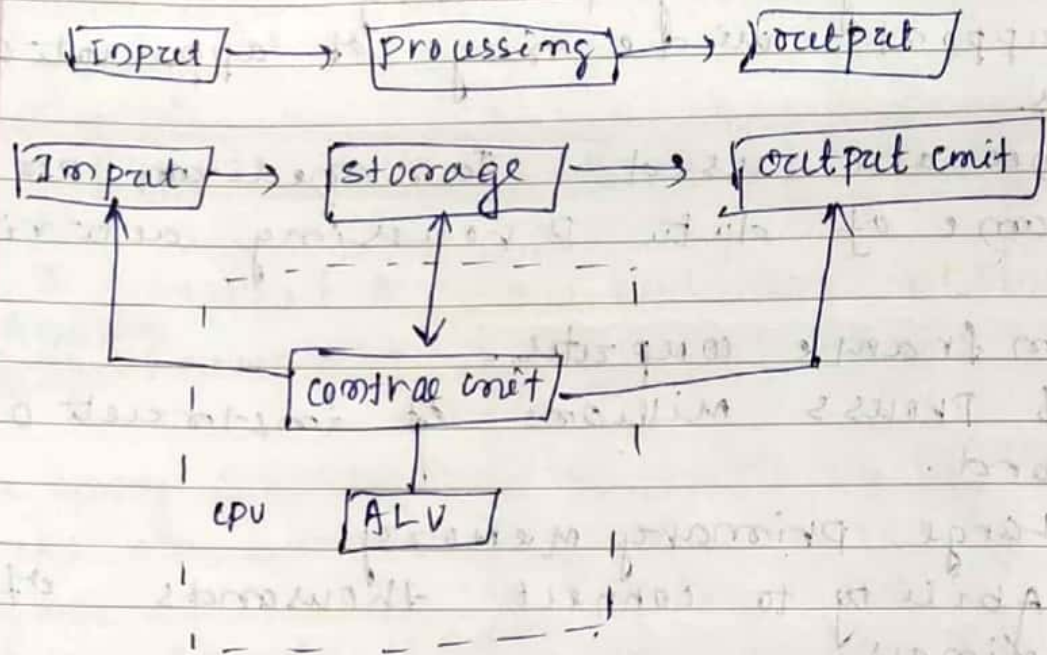 Input → processing → output
Input → storage → output unit
control unit
CPU ALU